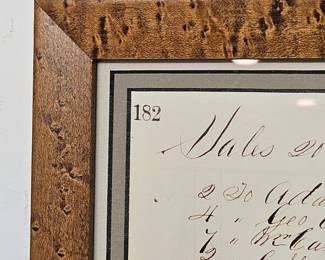 182
Sales 20
2 To Ada
4 " Geo
7 " Wm
2